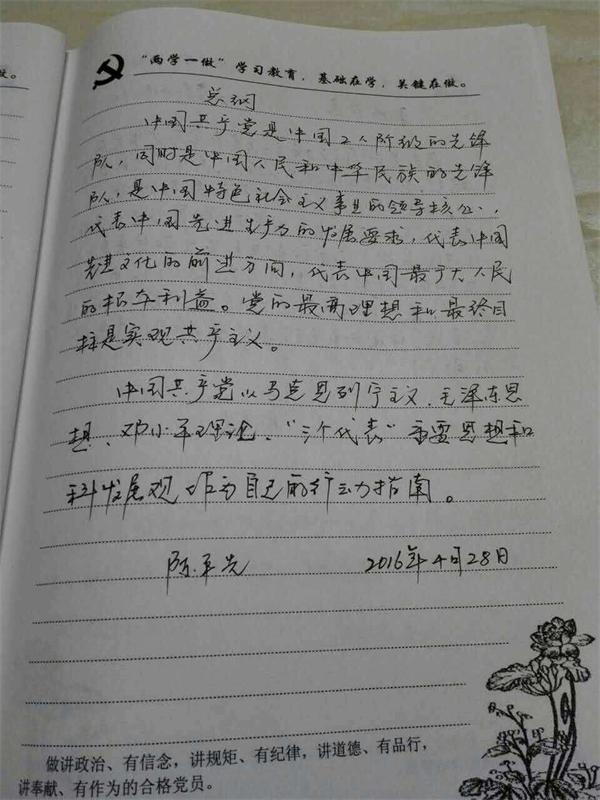 做。
“两学一做”学习教育,基础在学,关键在做。
总纲
中国共产党是中国工人阶级的先锋
队,同时是中国人民和中华民族的先锋
队,是中国特色社会主义事业的领导核心,
代表中国先进生产力的发展要求,代表中国
先进文化的前进方向,代表中国最广大人民
的根本利益。党的最高理想和最终目
标是实现共产主义。
中国共产党以马克思列宁主义、毛泽东思
想、邓小平理论、“三个代表”重要思想和
科学发展观作为自己的行动指南。
陈平先 2016年4月28日
做讲政治、有信念,讲规矩、有纪律,讲道德、有品行,
讲奉献、有作为的合格党员。